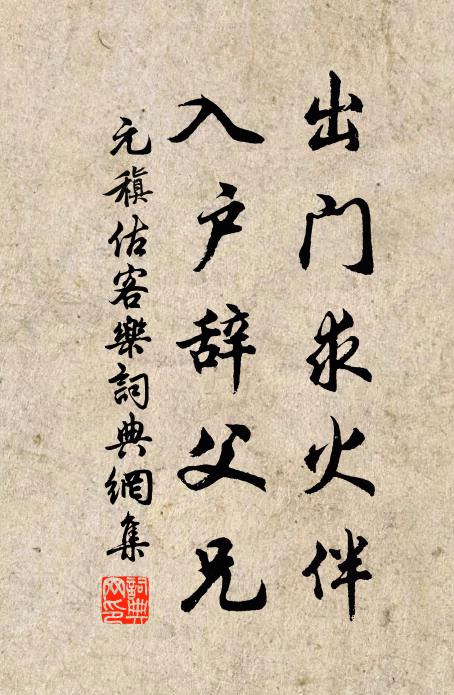 出門求火伴
入户辞父兄
元稹估客樂詞典網集
詞典網印